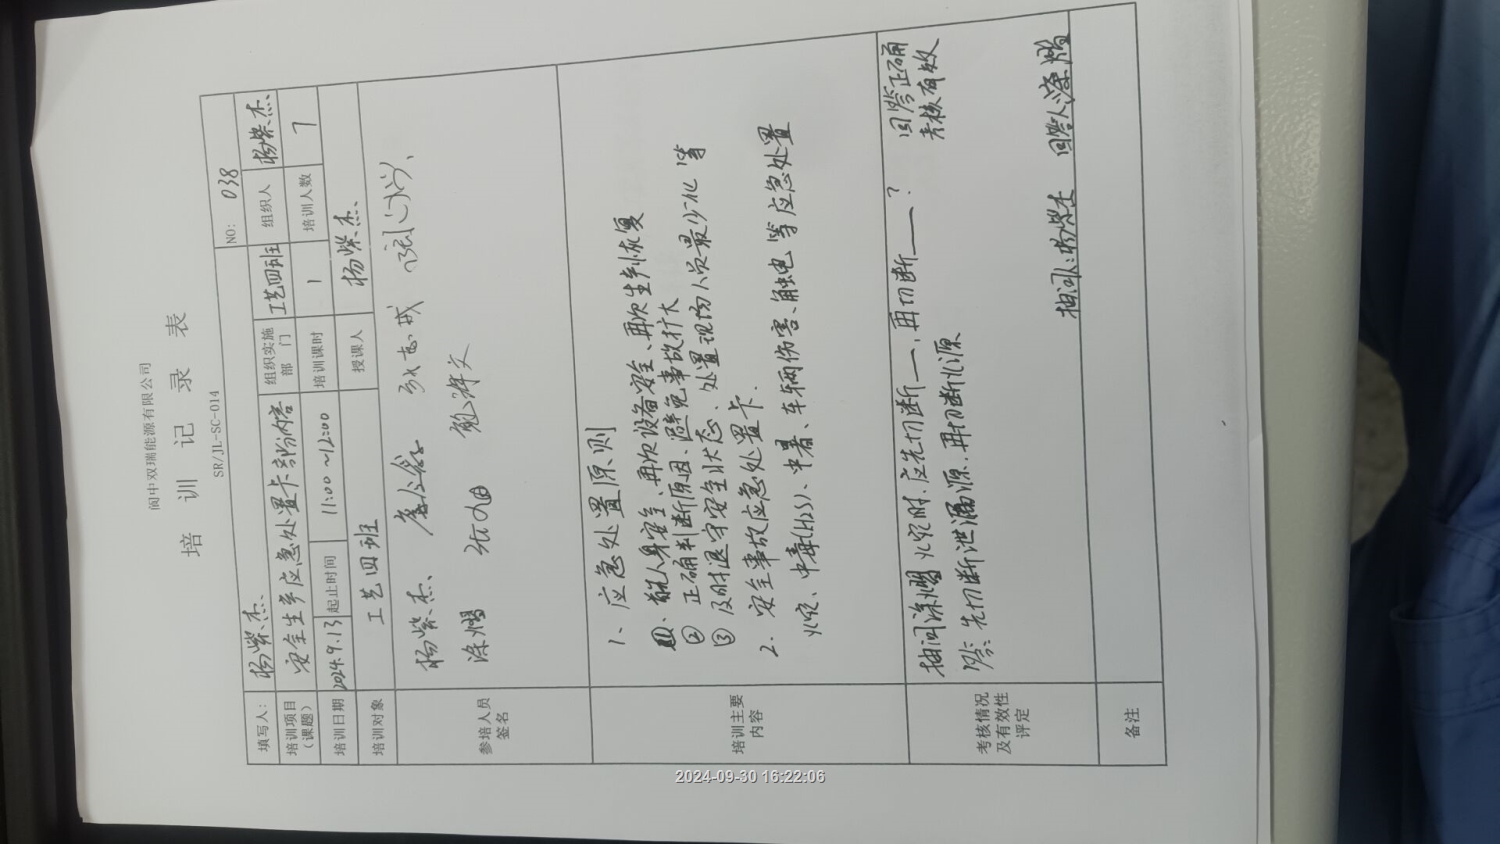 阆中双瑞能源有限公司
培 训 记 录 表
SR/JL-SC-014
NO: 038
填写人: 杨紫杰 组织实施部门 工艺四班 组织人 杨紫杰
培训项目(课题) 安全生产应急处置卡部份内容 培训课时 1 培训人数 7
培训日期 2024.9.13 起止时间 11:00~12:00 授课人 杨紫杰
培训对象 工艺四班
参培人员签名
杨紫杰、
涂熠
培训主要内容
1、应急处置原则
人身安全、再次设备安全、再次生产恢复
② 正确判断原因、避免事故扩大
③ 及时退守安全状态、处置现场人员最少化 等
2. 安全事故应急处置卡.
火灾、中毒(H2S)、中暑、车辆伤害、触电 等应急处置
考核情况及有效性评定
抽问涂熠 火灾时.应先切断__,再切断__? 回答正确
答: 先切断泄漏源.再切断火源 考核有效
抽问人:杨紫杰 回答人:涂熠
备注
2024-09-30 16:22:06